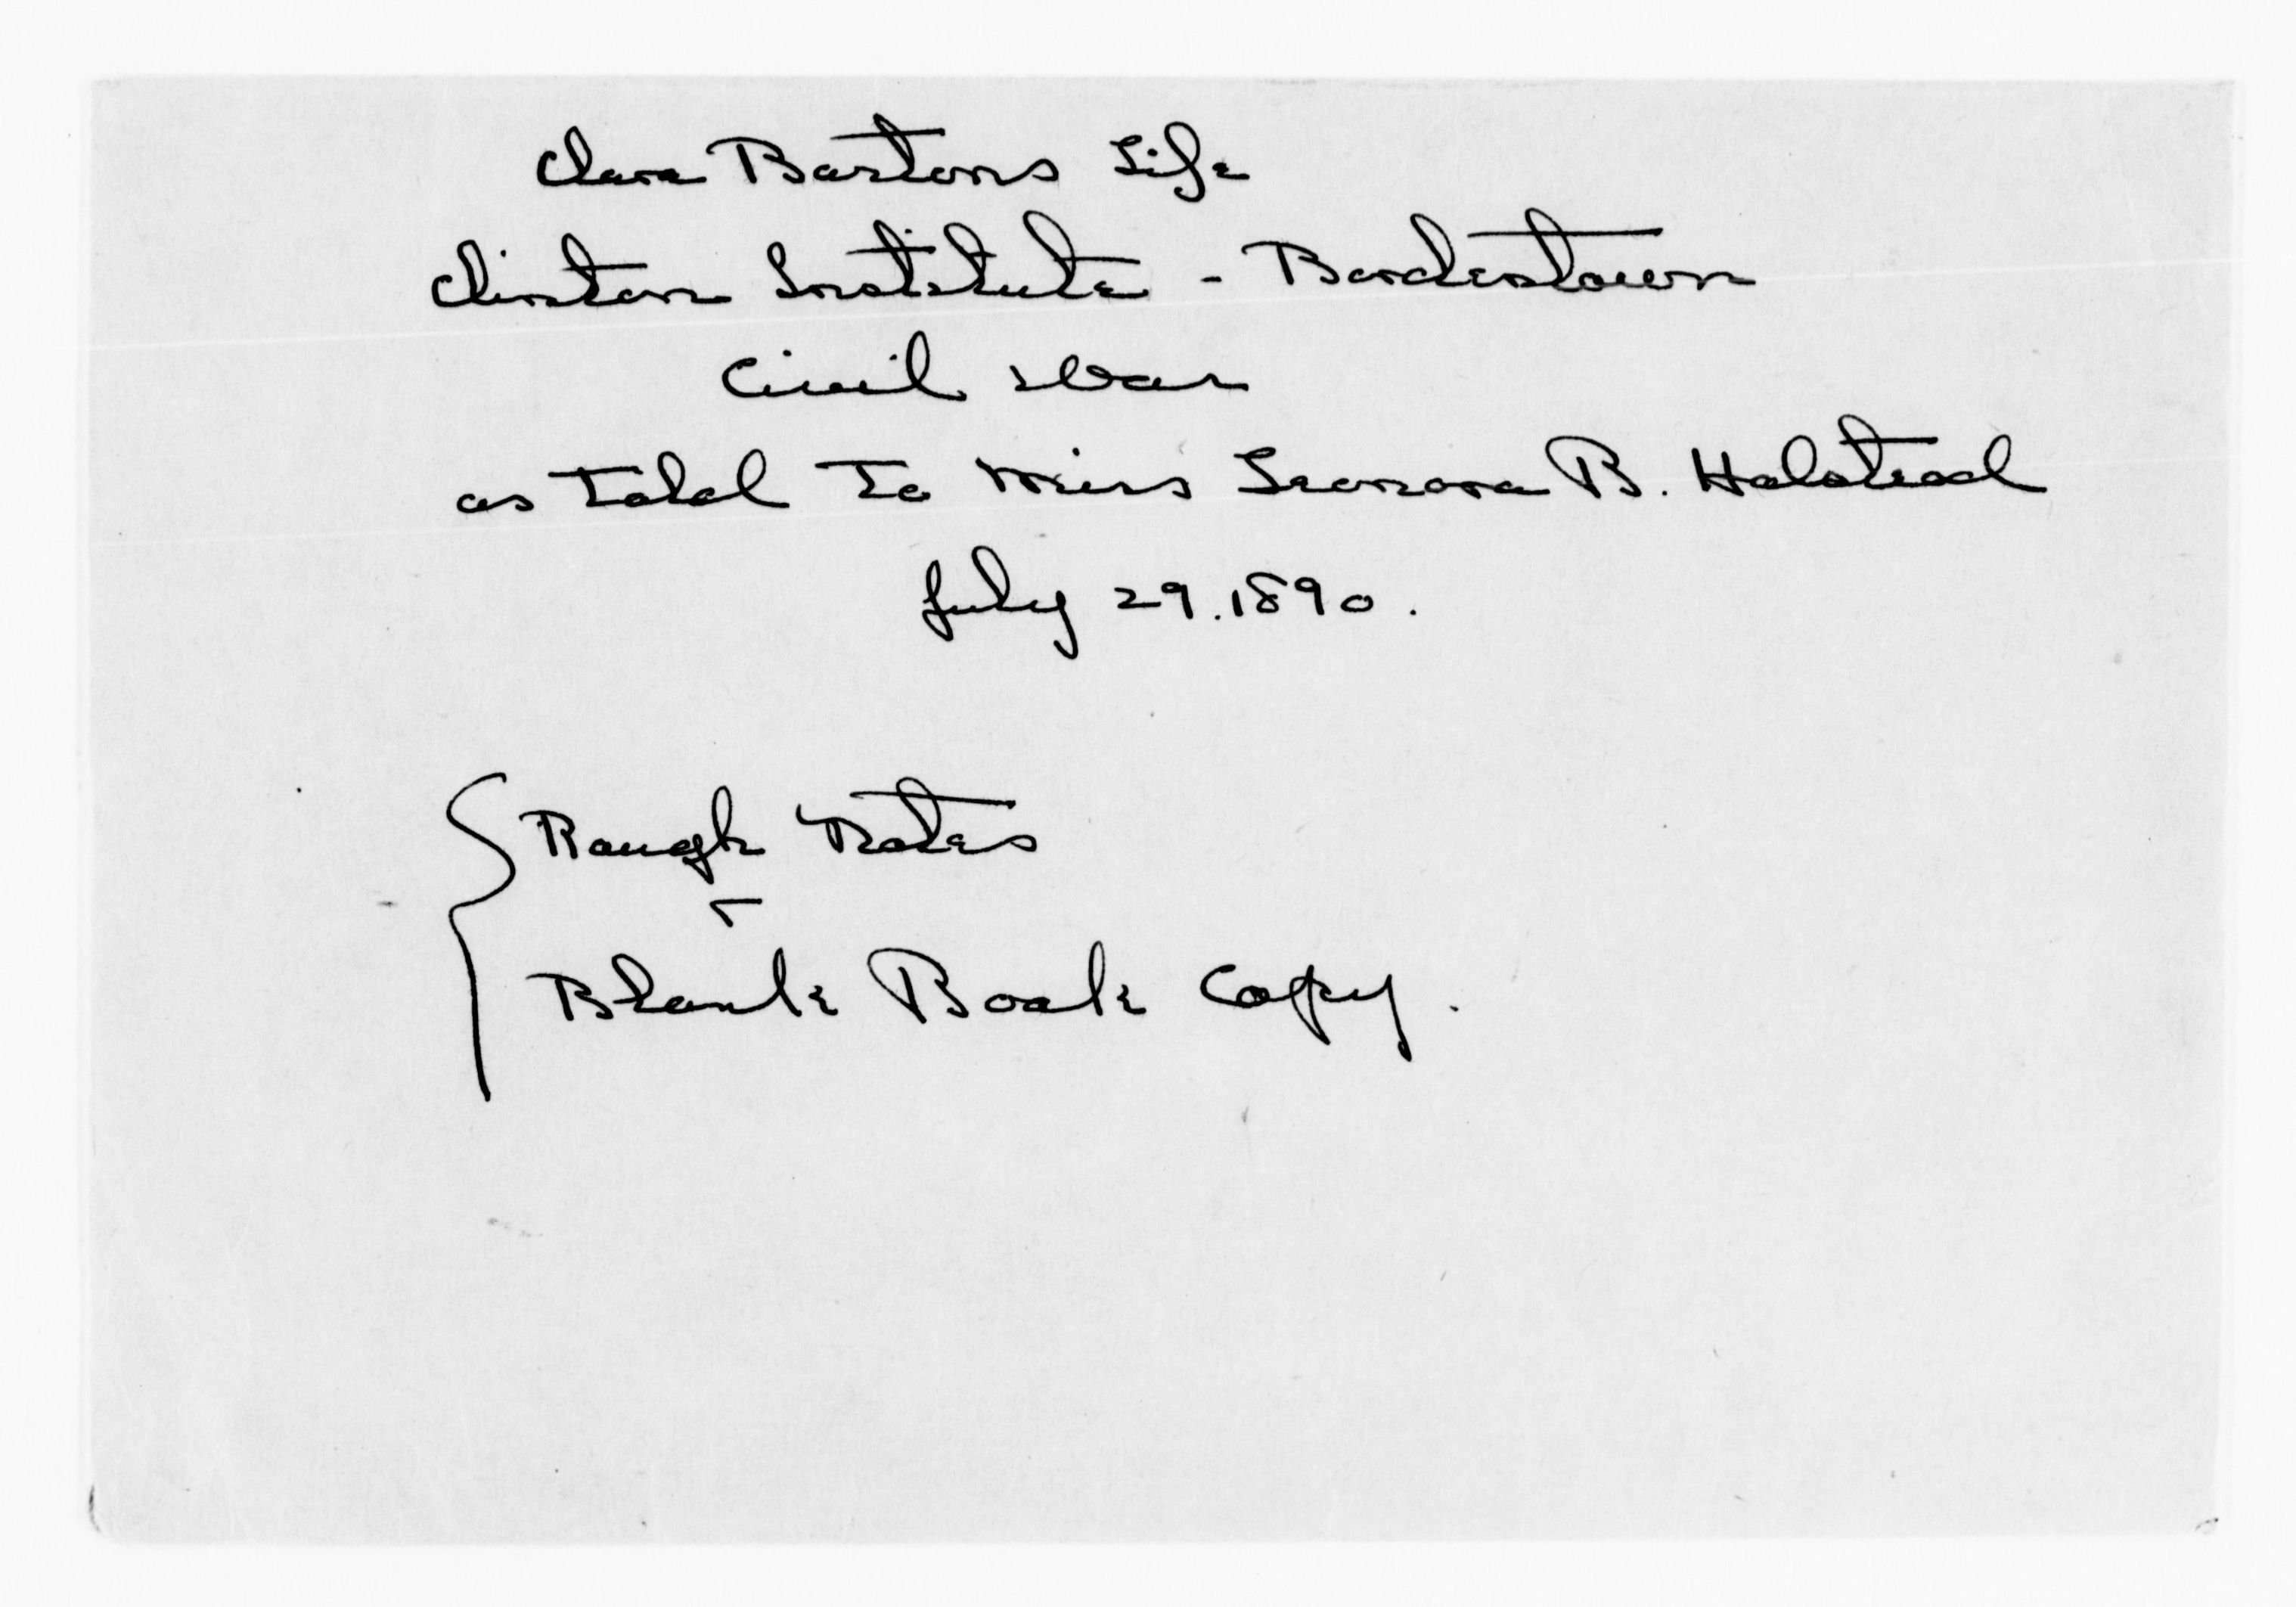 Clara Bartons Life
Clinton Institute - Bordentown
Civil War
as Told To Miss Leonora B. Halstead
July 29. 1890.
Rough Notes
Blank Book Copy.